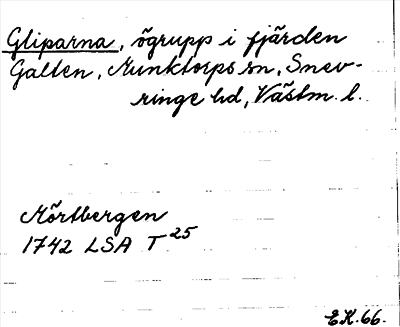 Gliparna, ögrupp i fjärden
Galten, Munktorps sn, Snev-
ringe hd, Västm. l.
Mörtbergen
1742 LSA T 25
E.K. 66.